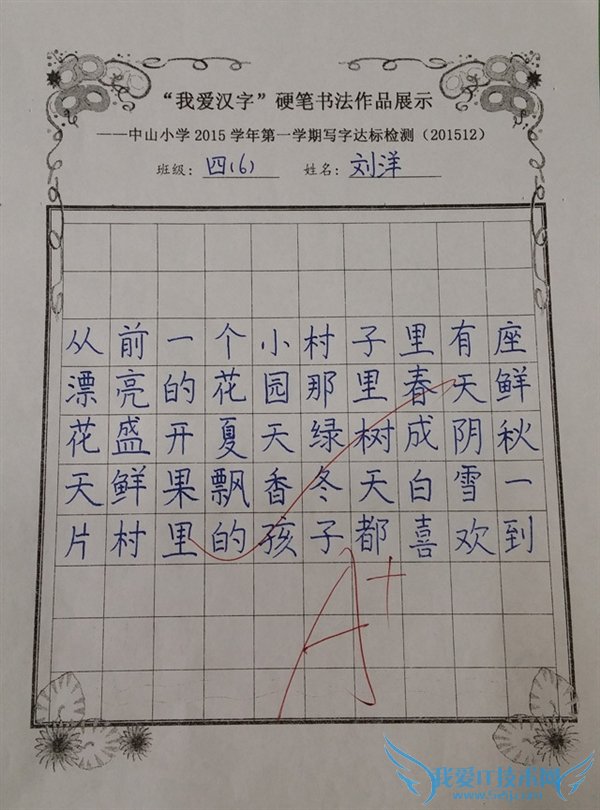 “我爱汉字”硬笔书法作品展示
——中山小学2015学年第一学期写字达标检测（201512）
班级：四(6) 姓名：刘洋
从前一个小村子里有座
漂亮的花园那里春天鲜
花盛开夏天绿树成阴秋
天鲜果飘香冬天白雪一
片村里的孩子都喜欢到
A+
我爱IT技术网